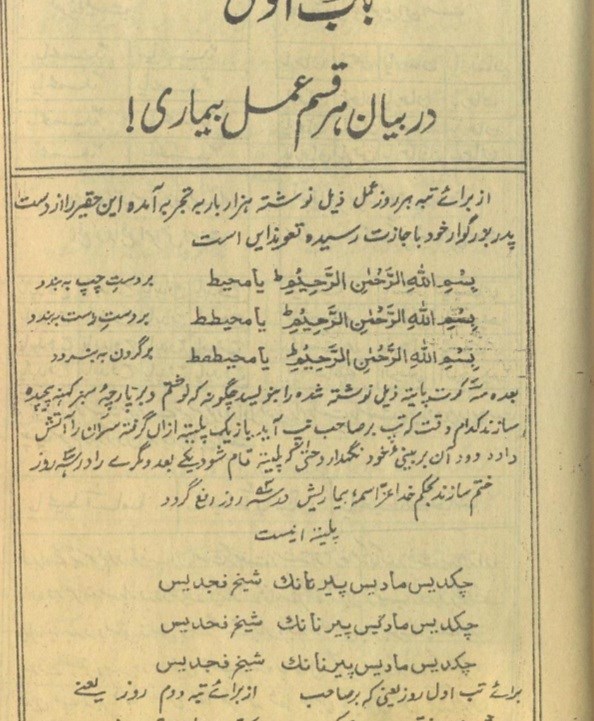 باب اول
در بیان ہر قسم عمل بیماری!
از برائے تپہ ہر روز عمل ذیل نوشتہ ہزار بار بہ تجربہ آمدہ این حقیر را از دست
پدر بزرگوار خود با جازت رسیدہ تعویذ ایں است
بِسْمِ اللهِ الرَّحْمٰنِ الرَّحِيْمِ ط یا محیط بر دستِ چپ بہ بندو
بِسْمِ اللهِ الرَّحْمٰنِ الرَّحِيْمِ ط یا محیطط بر دستِ راست بہ بندو
بِسْمِ اللهِ الرَّحْمٰنِ الرَّحِيْمِ ط یا محیططط بر گردن بہ
بعدہ سہ پلیتہ ذیل نوشتہ شدہ را بنویسد چگونہ کہ نوشتم و بر پارچۂ سبز کہنہ پیچیدہ
سازند کدام وقت کہ تپ بر صاحب تپ آید باز یک پلیتہ ازاں گرفتہ سرآن را آتش
دادہ دود آن بر بینیٔ خود نگہدارد حتیٰ کہ پلیتہ تمام شود یکے بعد دگرے را در سہ روز
ختم سازند بحکم خدا عزّ اسمہٗ بیماریش در سہ روز رفع گردد
پلیتہ اینست
چکدیس مادیس پیر نانك شیخ فجدیس
چکدیس مادیس پیر نانك شیخ فحدیس
چکدیس مادیس پیر نانك شیخ فجدیس
برائے تب اول روز یعنی کہ بر صاحب از برائے تپہ دوم روز یعنے